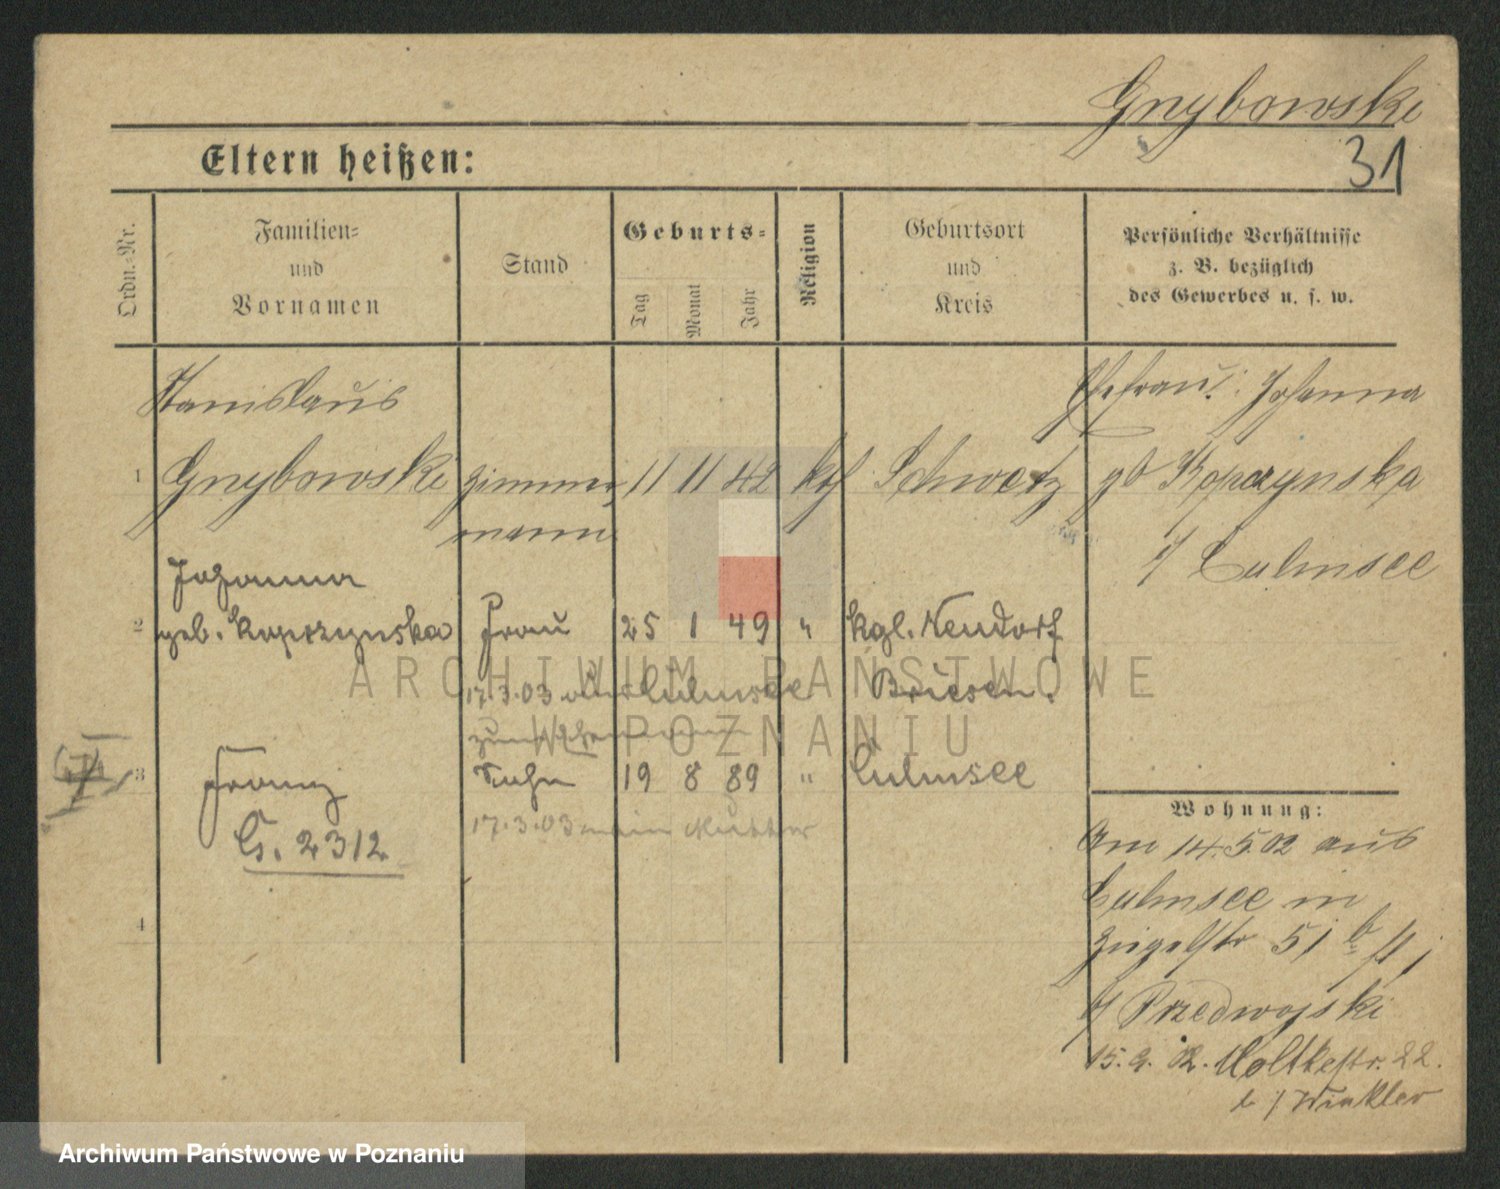 Gnybowski
31
Eltern heißen:
Ordn.-Nr.
Familien-
und
Vornamen
Stand
Geburts-
Tag
Monat
Jahr
Religion
Geburtsort
und
Kreis
Persönliche Verhältnisse
z. B. bezüglich
des Gewerbes u. s. w.
Stanislaus
Ehefrau: Johanna
1 Gnybowski Zimmer 11 11 42 kth Schwetz gb Kopczynska
mann
i/ Culmsee
Johanna
2 geb. Kopczynska Frau 25 1 49 " kgl. Neudorf
17.3.03 Culmsee Briesen.
zum Ehemann
3 Franz Sohn 19 8 89 " Culmsee
G. 2312
17.3.03 Mutter
4
Wohnung:
Am 14.5.02 aus
Culmsee in
51 b
b/ Przedwojski
15.9.02. Moltkestr. 22.
b/ Winkler
ARCHIWUM PAŃSTWOWE
W POZNANIU
Archiwum Państwowe w Poznaniu